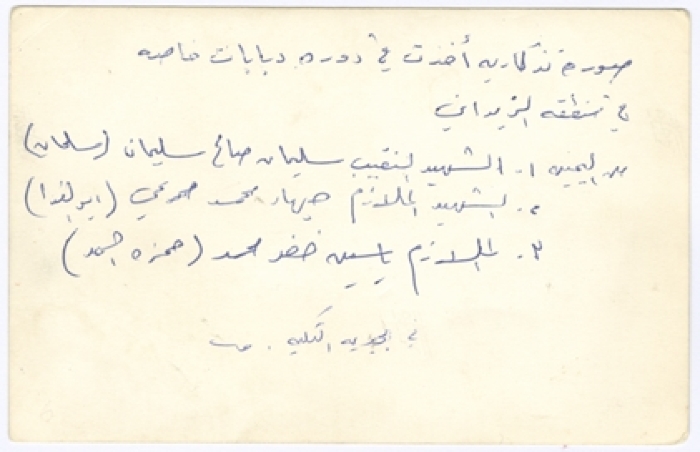 صورة تذكارية أخذت في دورة دبابات خاصه
في منطقه الزبداني
من اليمين ١. الشهيد النقيب سليمان صالح سليمان (سلمان)
٢. الشهيد الملازم محمد (ابو الفدا)
٣. الملازم ياسين خضر محمد (حمزه)
في